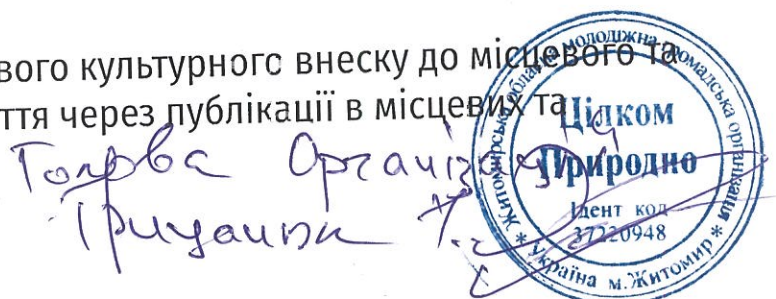 вого культурного внеску до місцевого та
ття через публікації в місцевих та
Голова Організації
Грицанюк
Житомирська обласна молодіжна громадська організація
Цілком
Природно
Ідент код
37220948
* Україна м.Житомир *